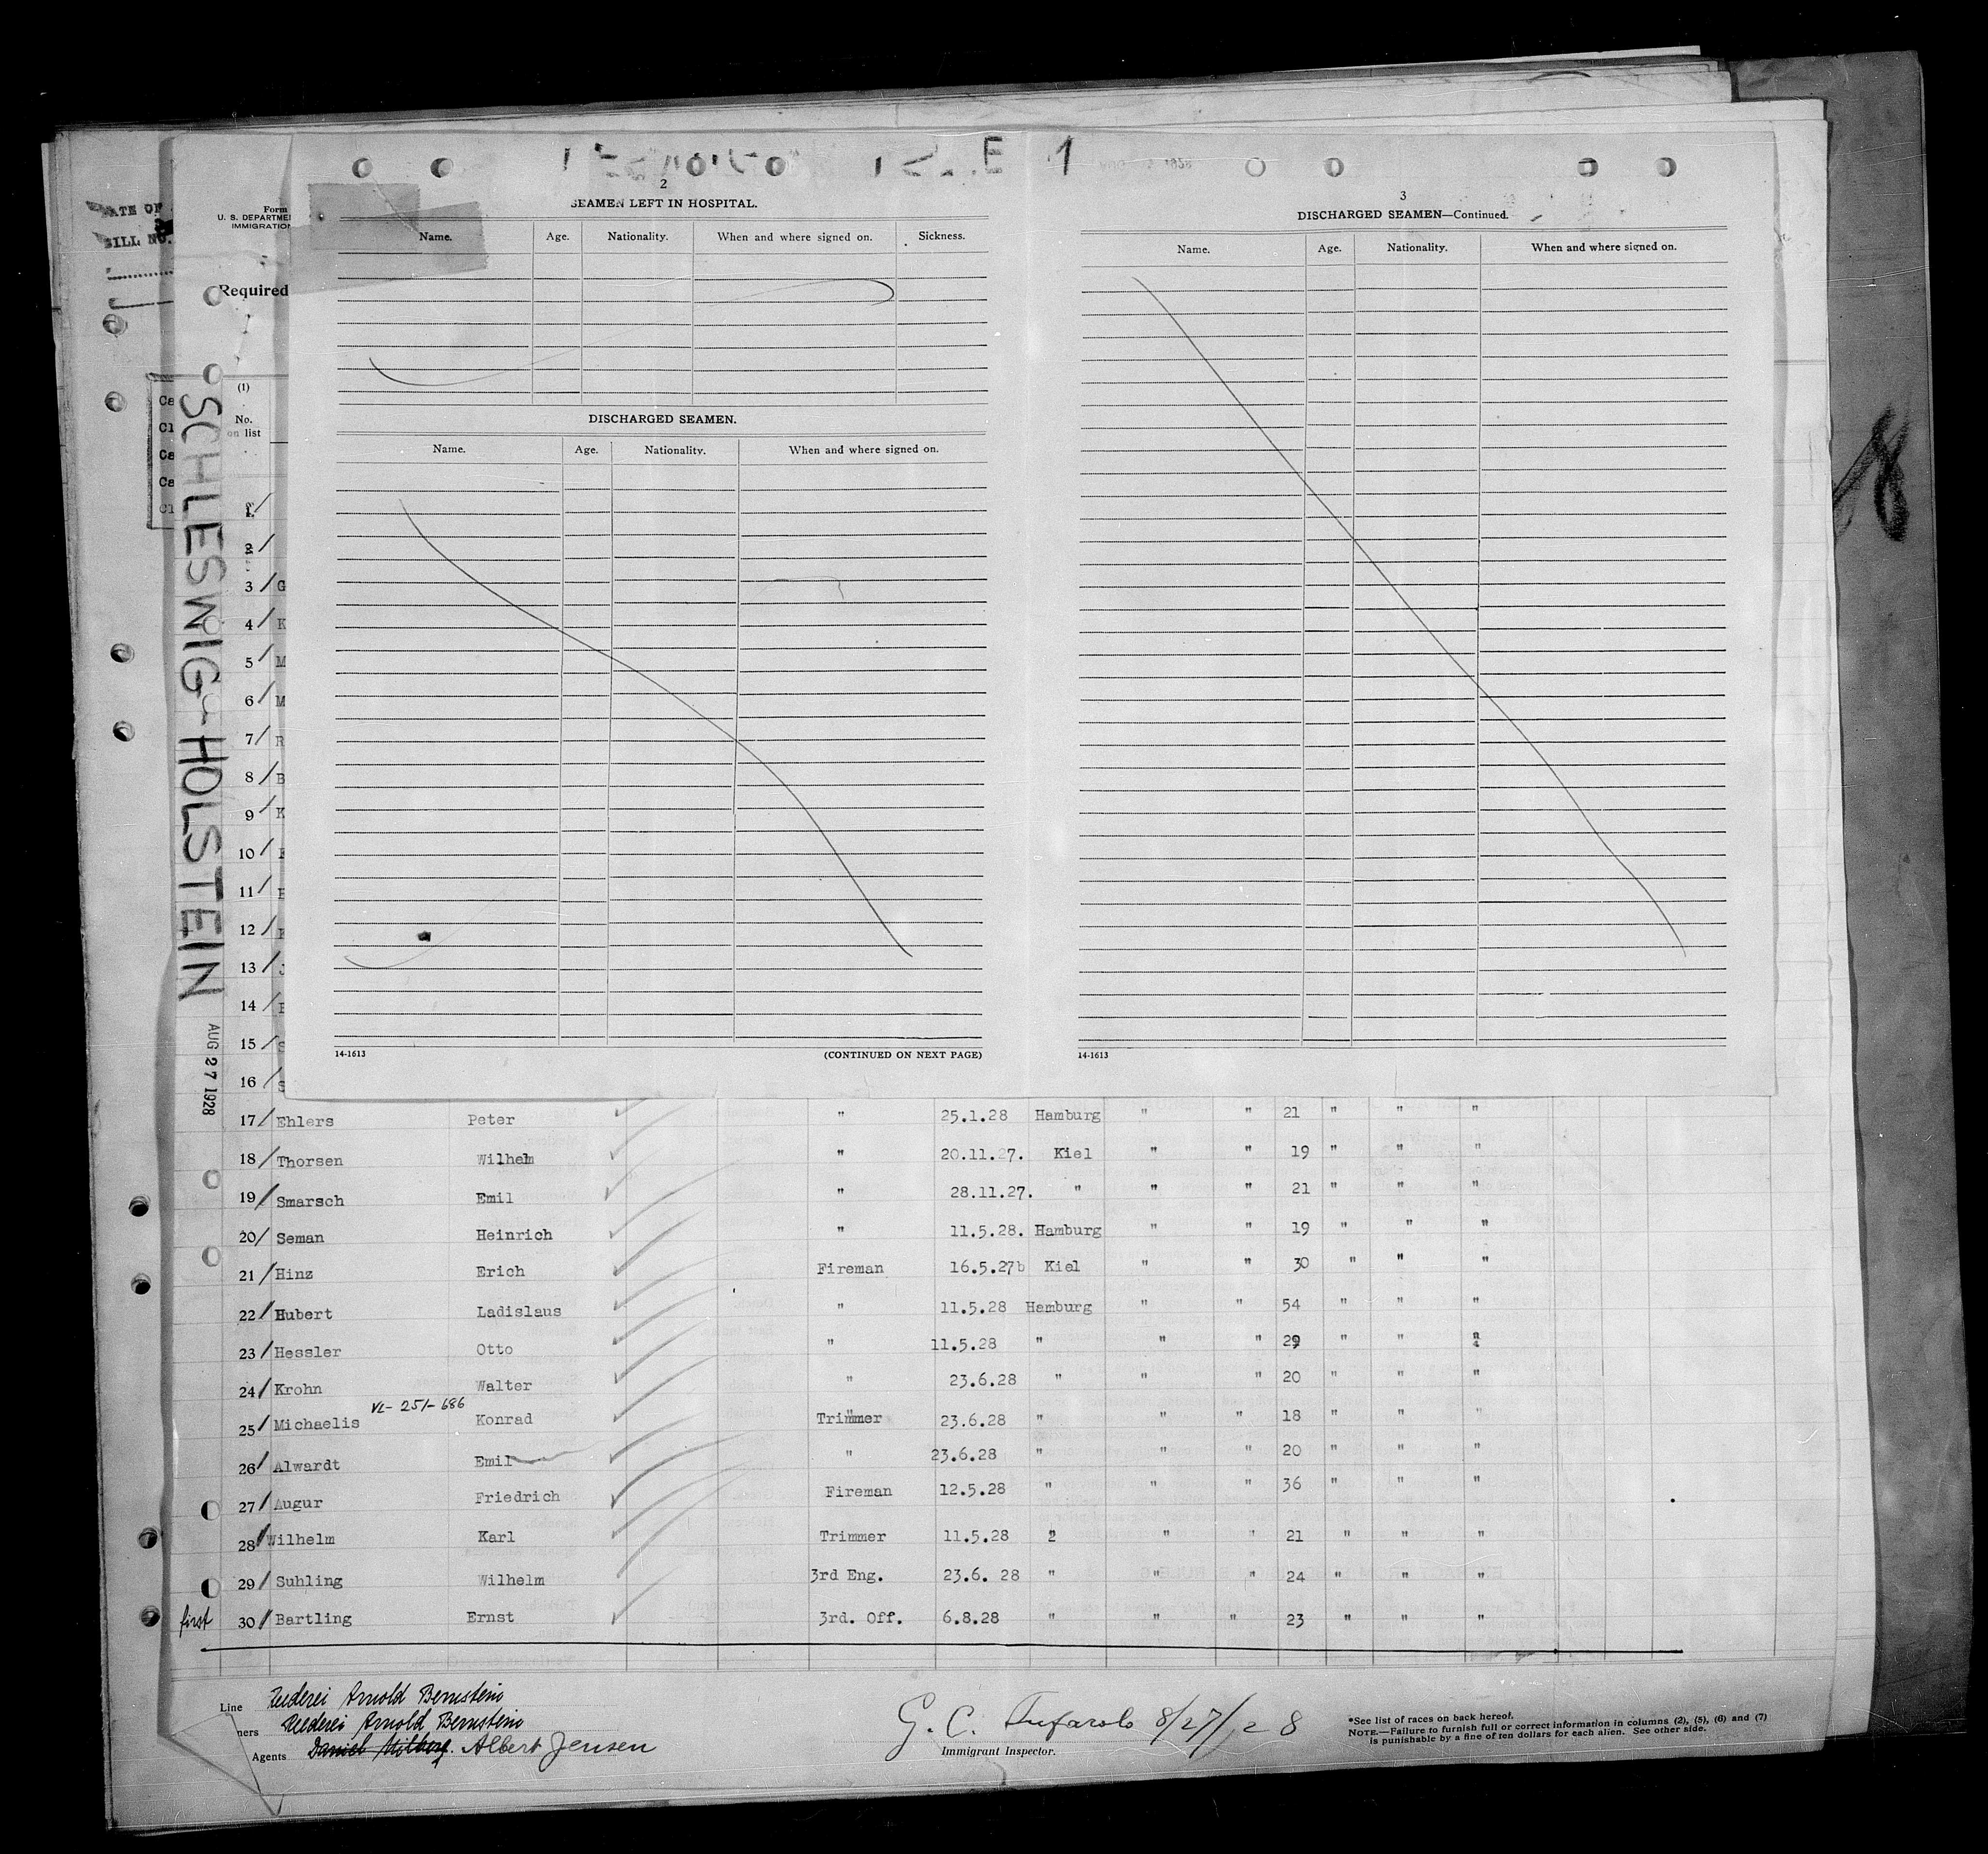 E 1
2
SEAMEN LEFT IN HOSPITAL.
Name. Age. Nationality. When and where signed on. Sickness.
DISCHARGED SEAMEN.
Name. Age. Nationality. When and where signed on.
14-1613 (CONTINUED ON NEXT PAGE)
3
DISCHARGED SEAMEN—Continued.
Name. Age. Nationality. When and where signed on.
14-1613
ATE OF
BILL NO.
Form
U. S. DEPARTME
IMMIGRATION
Required
(1)
No.
on list
Ca
Cl
Ca
Ca
Cl
SCHLESWIG-HOLSTEIN
AUG 27 1928
8
1
2
3 G
4 K
5 M
6 M
7 R
8 B
9 K
10
11
12
13 J
14
15 S
16 S
17 Ehlers Peter " 25.1.28 Hamburg " " 21 " " "
18 Thorsen Wilhelm " 20.11.27. Kiel " " 19 " " "
19 Smarsch Emil " 28.11.27. " " " 21 " " "
20 Seman Heinrich " 11.5.28. Hamburg " " 19 " " "
21 Hinz Erich Fireman 16.5.27b Kiel " " 30 " " "
22 Hubert Ladislaus " 11.5.28 Hamburg " " 54 " " "
23 Hessler Otto " 11.5.28 " " " 29 " " "
24 Krohn Walter " 23.6.28 " " " 20 " " "
VL-251-686
25 Michaelis Konrad Trimmer 23.6.28 " " " 18 " " "
26 Alwardt Emil " 23.6.28 " " " 20 " " "
27 Augur Friedrich Fireman 12.5.28 " " " 36 " " "
28 Wilhelm Karl Trimmer 11.5.28 " " " 21 " " "
29 Suhling Wilhelm 3rd Eng. 23.6. 28 " " " 24 " " "
first 30 Bartling Ernst 3rd. Off. 6.8.28 " " " 23 " " "
Line Reederei Arnold Bernstein
ners Reederei Arnold Bernstein
Agents Daniel Milberg. Albert Jensen
G. C. Tufarolo 8/27/28
Immigrant Inspector.
*See list of races on back hereof.
NOTE.—Failure to furnish full or correct information in columns (2), (5), (6) and (7)
is punishable by a fine of ten dollars for each alien. See other side.